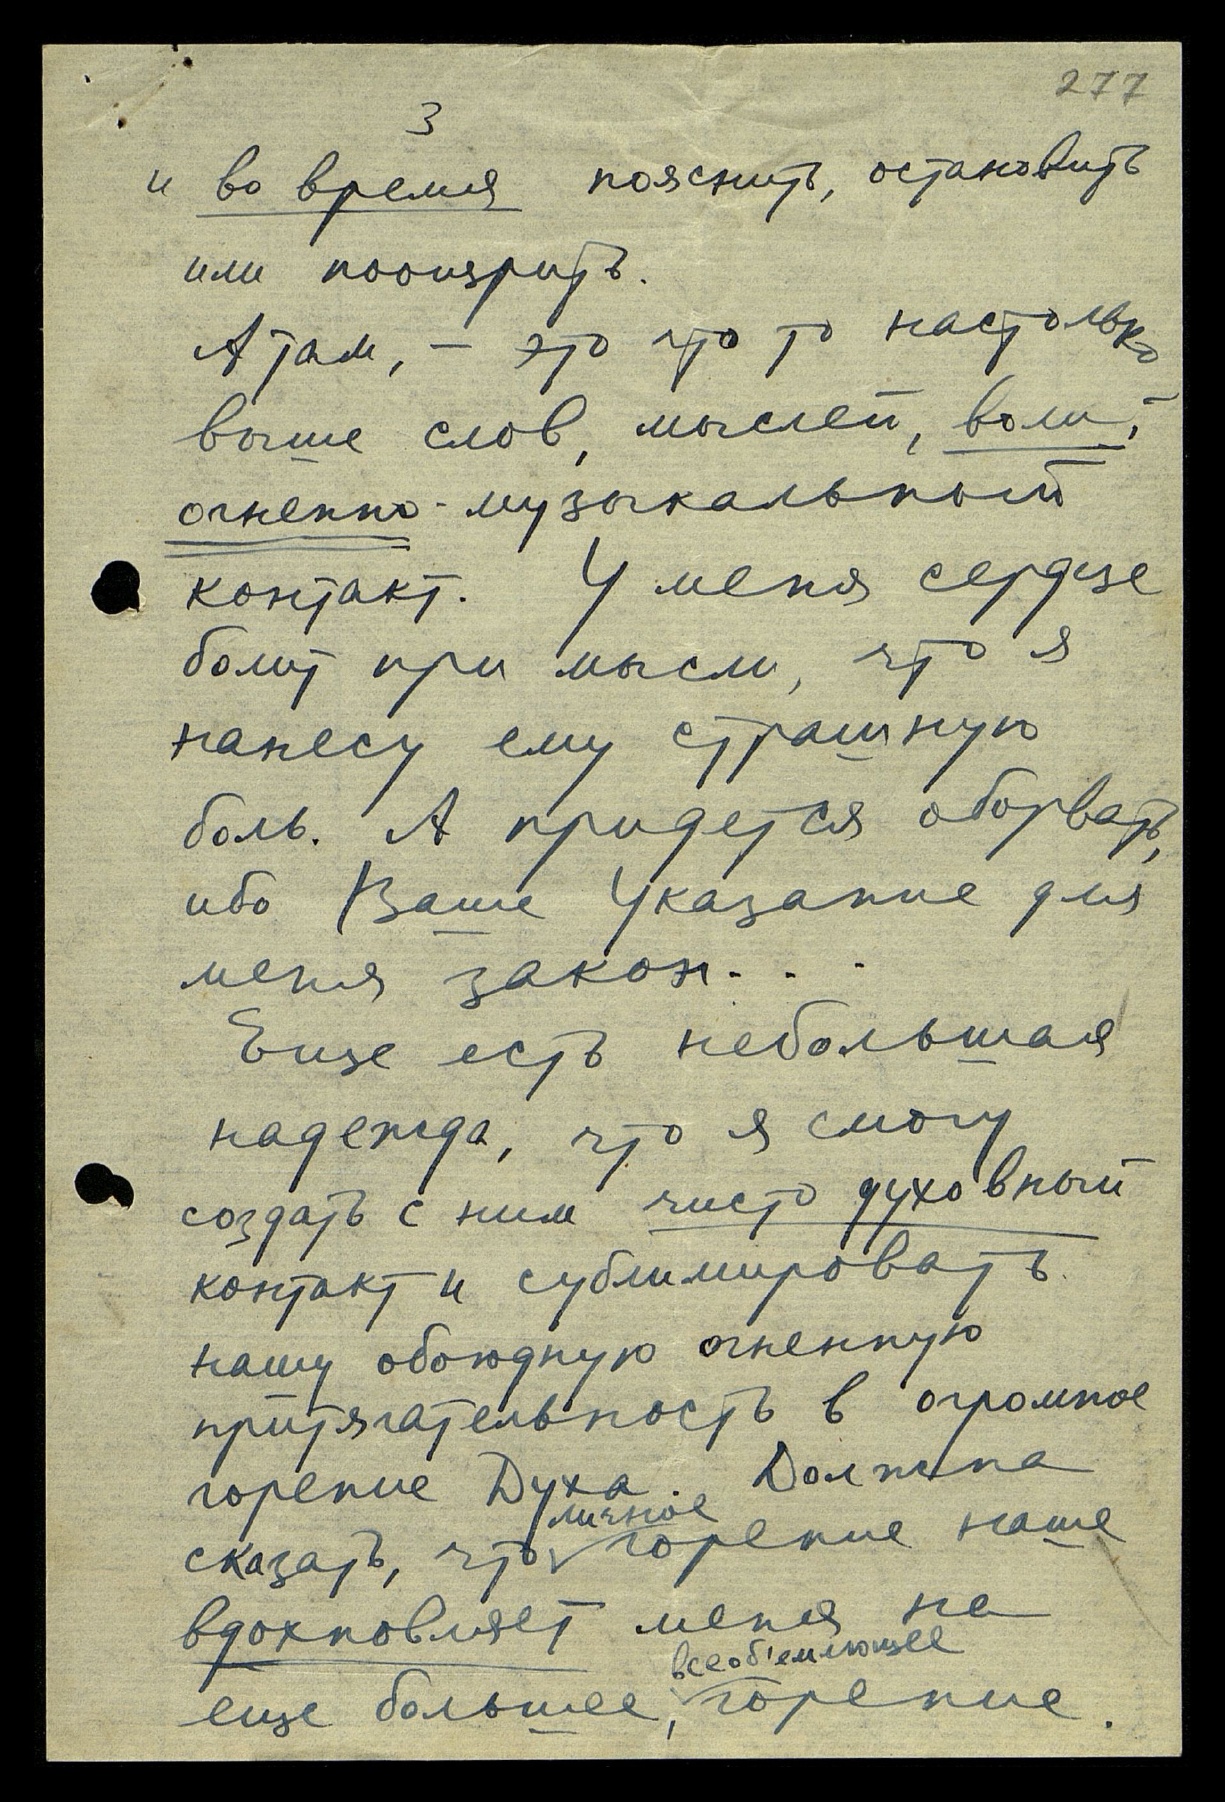 277
3
и во время пояснить, остановить
или поощрить.
А там, – это что то настолько
выше слов, мыслей, воли,
огненно-музыкальный
контакт. У меня сердце
болит при мысли, что я
нанесу ему страшную
боль. А придется оборвать,
ибо Ваше Указание для
меня закон...
Еще есть небольшая
надежда, что я смогу
создать с ним чисто духовный
контакт и сублимировать
нашу обоюдную огненную
притягательность в огромное
горение Духа. Должна
личное
сказать, что горение наше
вдохновляет меня на
всеоб'емлющее
еще большее, горение.